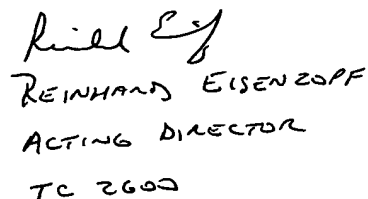 REINHARD EISENZOPF
ACTING DIRECTOR
TC 2600